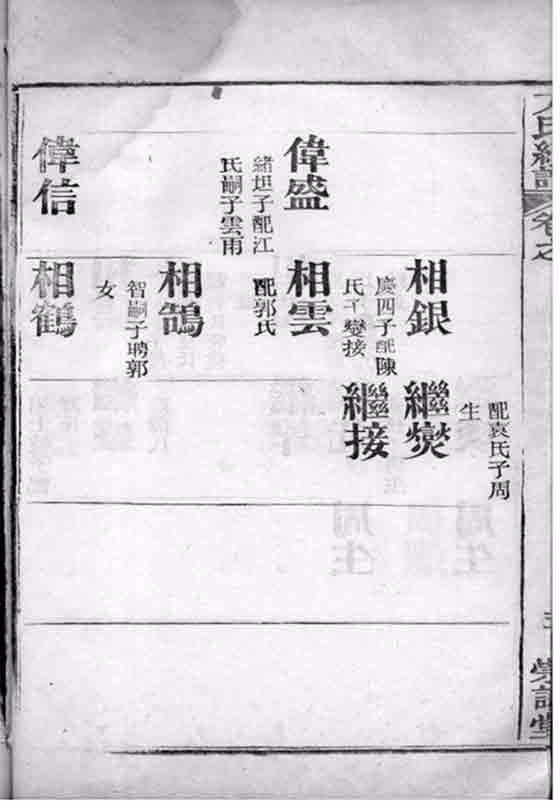 偉盛
緒坦子配江
氏嗣子雲
偉信
相銀
慶四子配陳
氏子燮接
相雲
配郭氏
相鵠
智嗣子聘郭
女
相鶴
配袁氏子周
生
繼燮
繼接